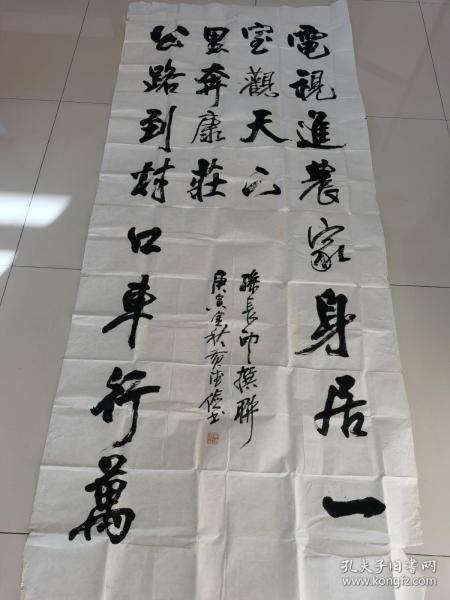 電視進農家身居一
室觀天下
公路到村口車行萬
里奔康莊
孫長印撰聯
庚寅金秋黄
孔夫子旧书网
www.kongfz.com